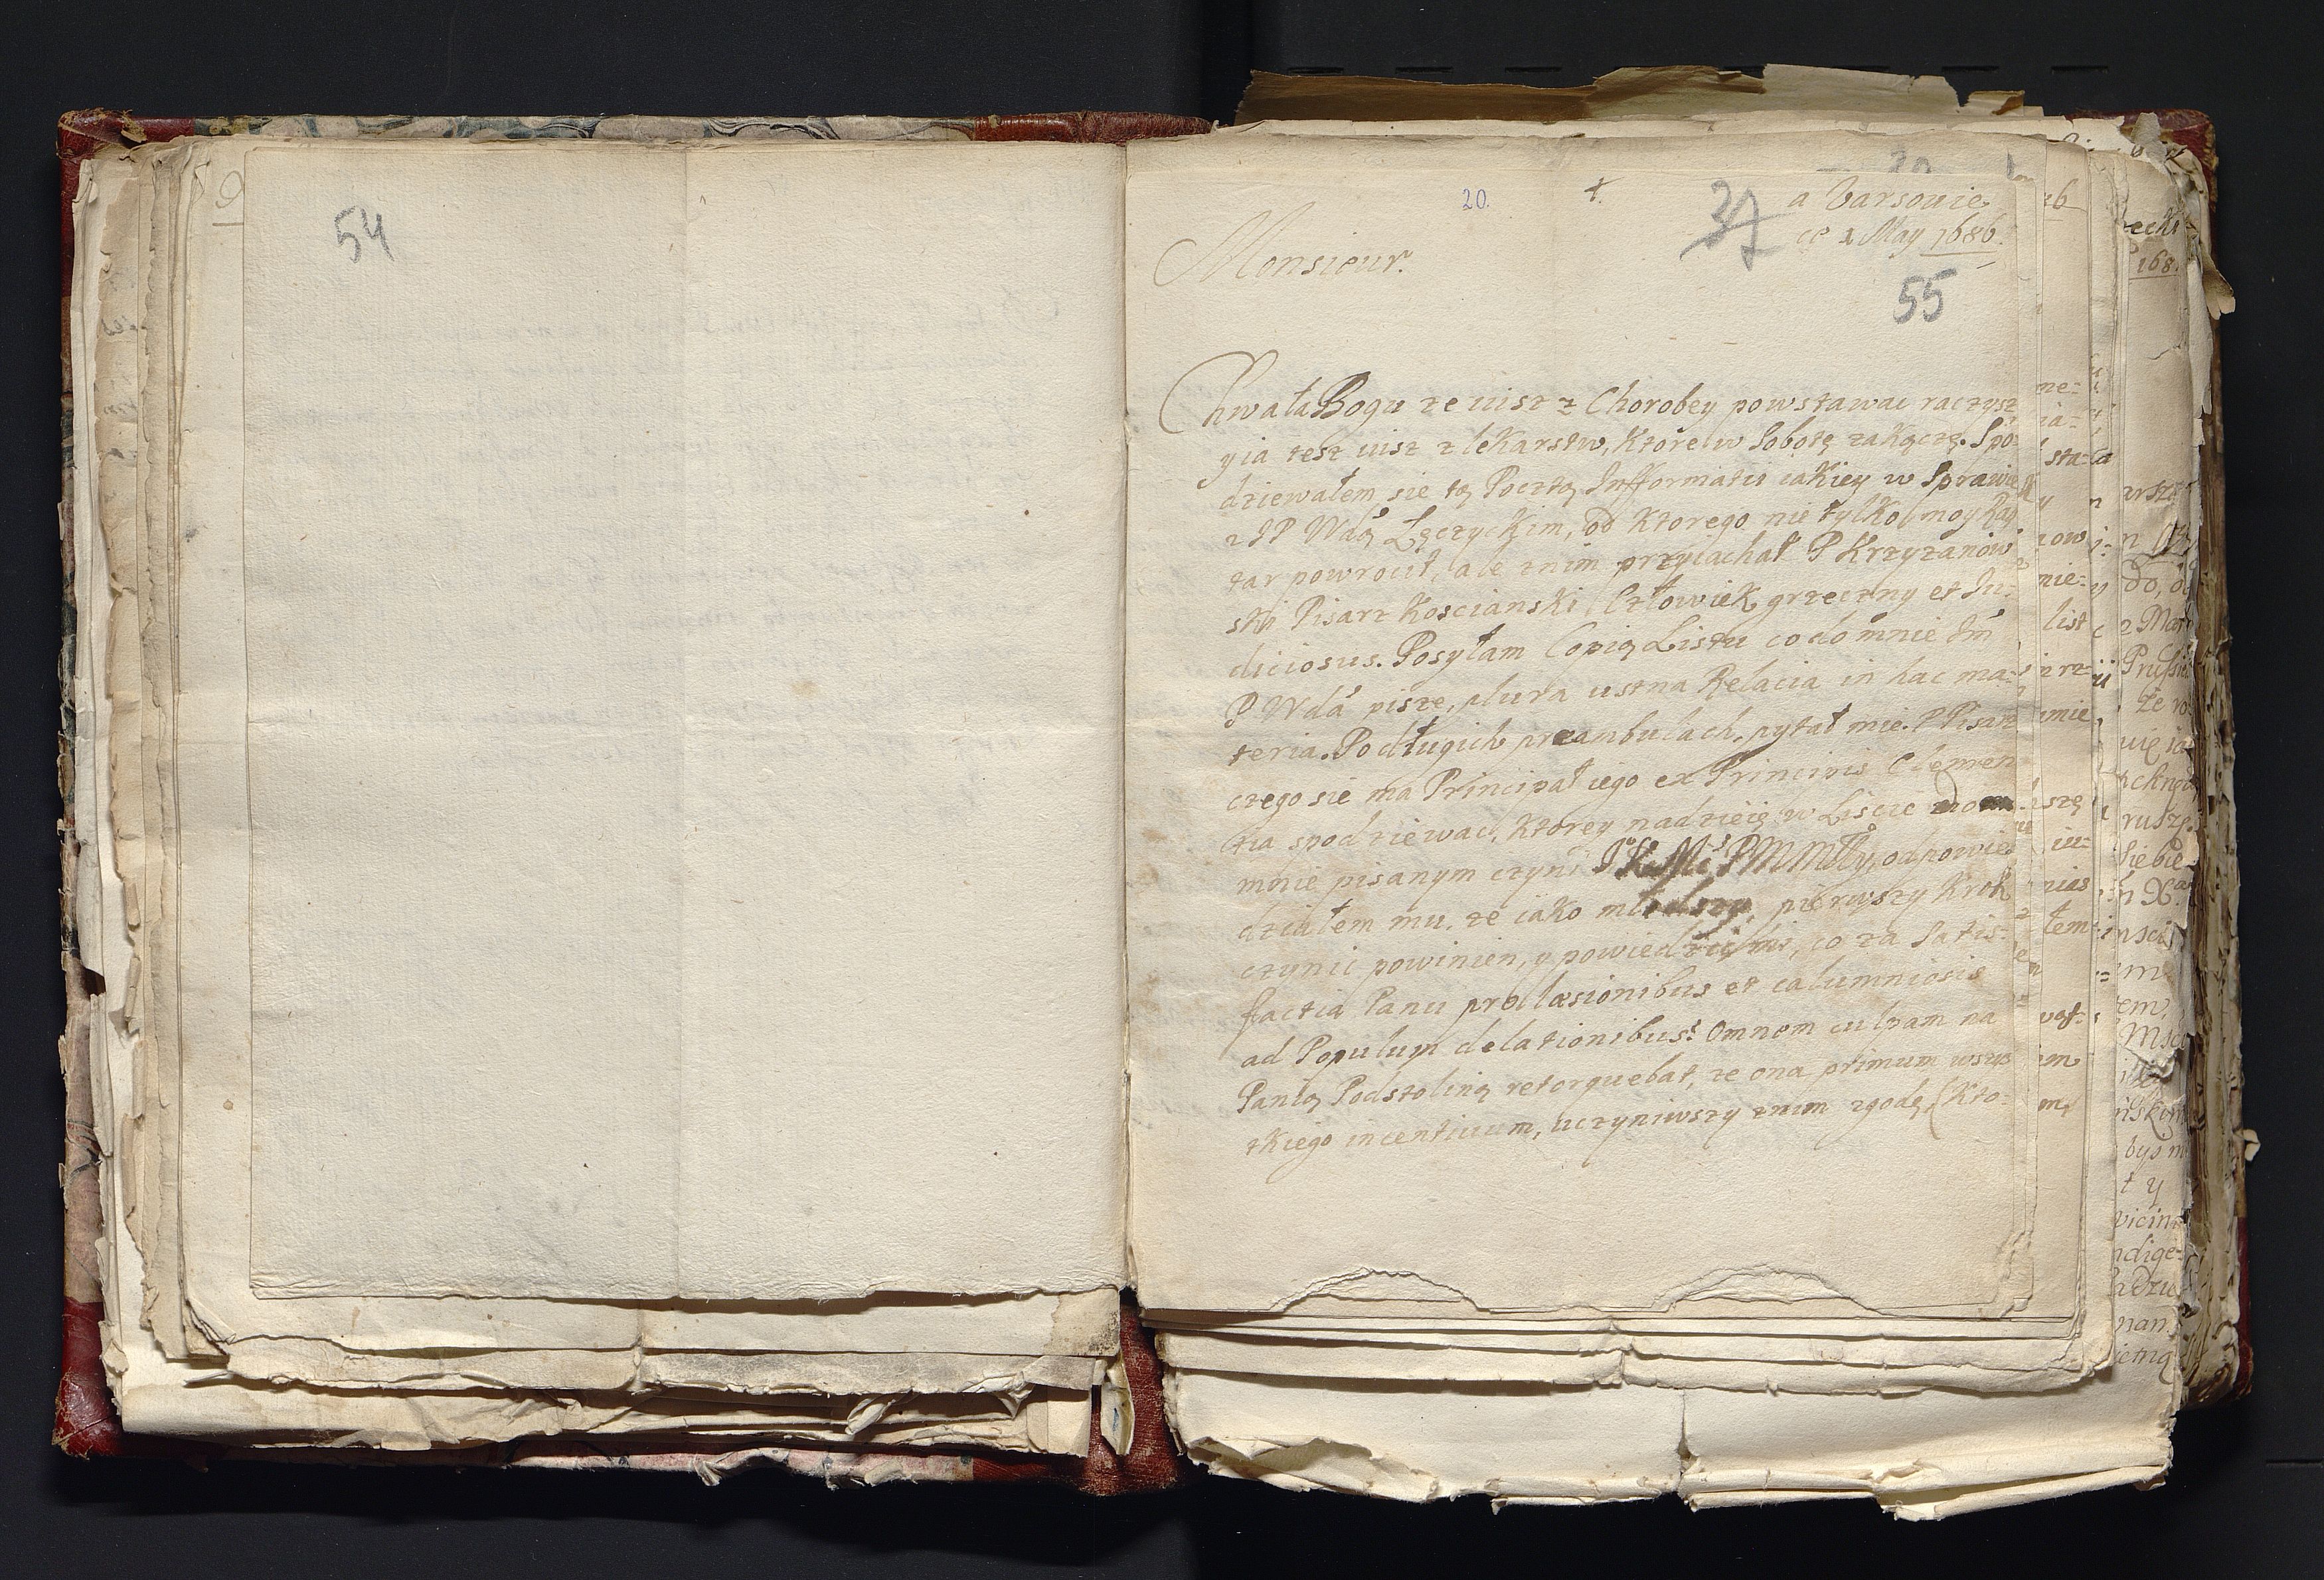 54
20.
37
a Varsovie
ce 1 May 1686.
Monsieur.
55
Chwała Bogu ze uisz z Chorobey powstawac raczysz
y ia tesz uisz z lekarstw, ktore w Sobotę zakączę. Spo-
dziewałem się tą Pocztą Infformatii iakiey w Sprawie
z JP Wdą Lęczyckim, od ktorego nie tylko moy
tar powrocił, ale znim przyiachał P Krzyzanow
ski Pisarz Koscianski, Człowiek grzeczny et Ju-
diciosus. Posyłam Copią Listu co do mnie Jm
P Wda pisze, plura ustna Relacia in hac ma-
teria. Po długich preambulach, pytał mie P Pisarz
czego sie ma Principał iego ex Principis Clemen
tia spodziewac, ktorey nadzieię w Liscie do
mnie pisanym czyni odpowie
działem mu, ze iako mlodszy, pierwszy krok
czynic powinien, y powiedzial mi, co za Satis-
factia Panu pro læsionibus et calumniosis
ad Populum delationibus? Omnem culpam na
Panią Podstoliną retorquebat, ze ona primum wszys
tkiego incentivum, uczyniwszy znim zgodę, (kto-